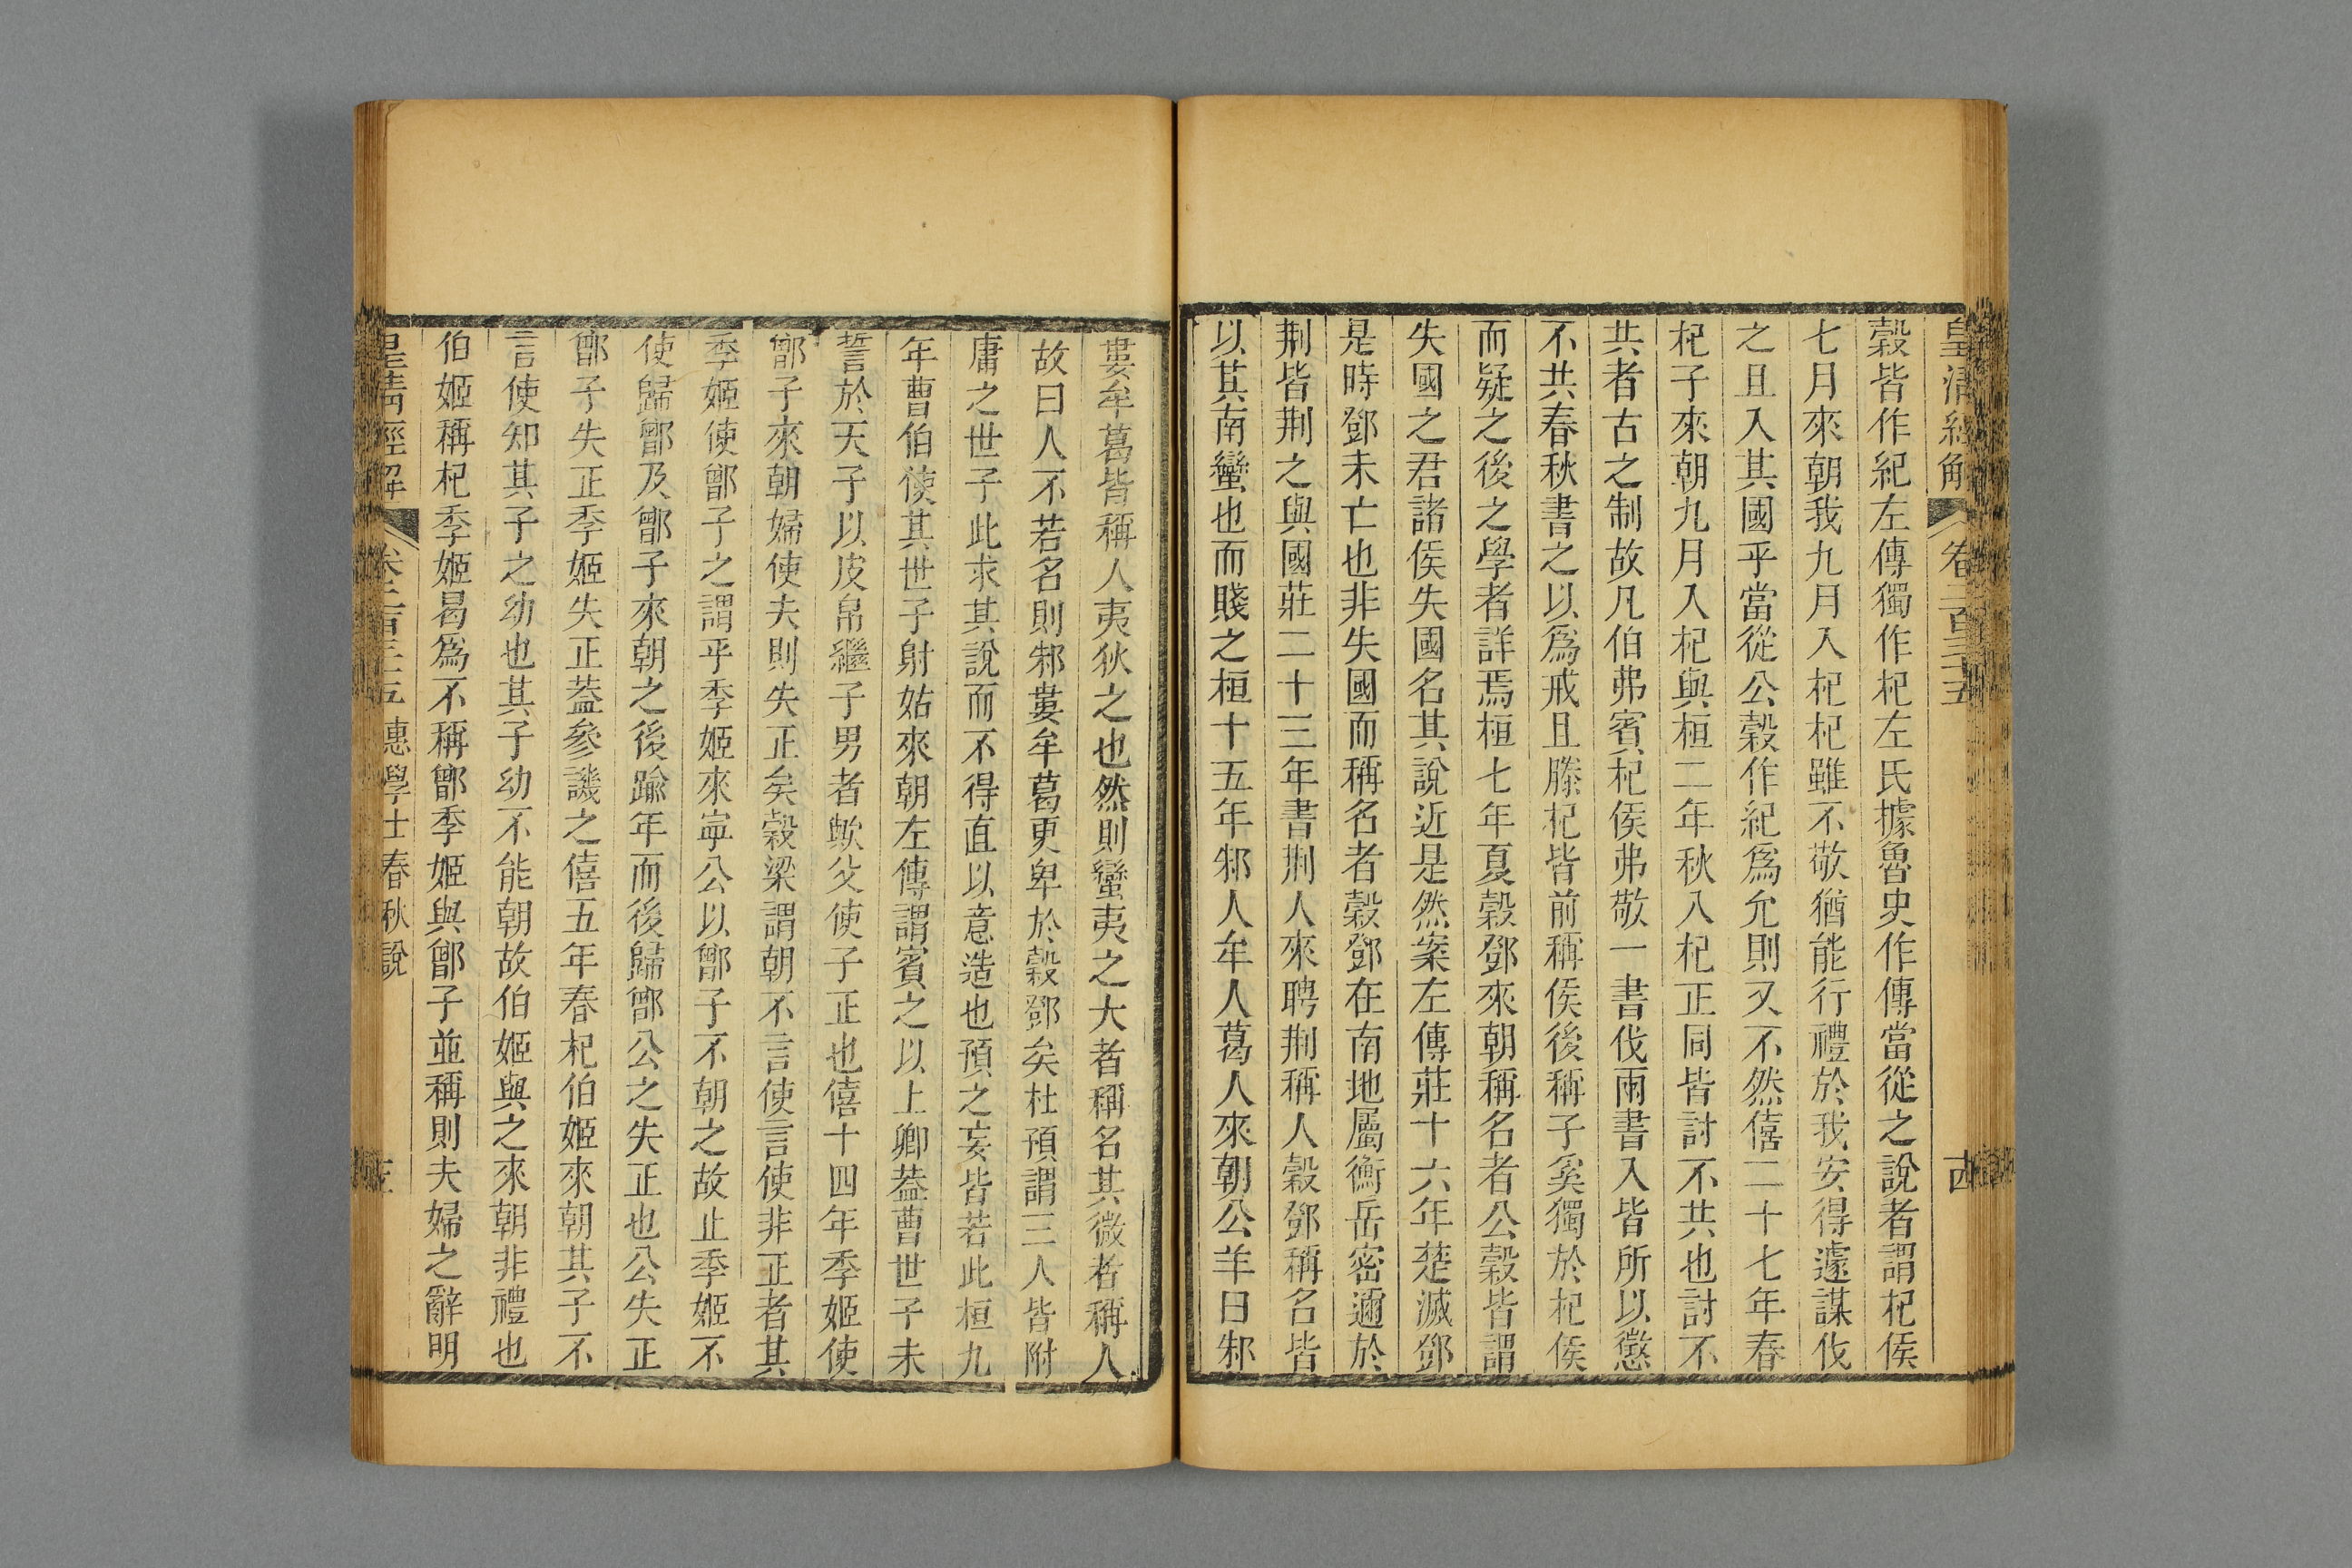 皇清經解 卷二百三十五 古
穀皆作紀左傳獨作杞左氏據魯史作傳當從之說者謂杞侯
七月來朝我九月入杞杞雖不敬猶能行禮於我安得遽謀伐
之且入其國乎當從公穀作紀爲允則又不然僖二十七年春
杞子來朝九月入杞與桓二年秋入杞正同皆討不共也討不
共者古之制故凡伯弗賓杞侯弗敬一書伐兩書入皆所以懲
不共春秋書之以爲戒且滕杞皆前稱侯後稱子奚獨於杞侯
而疑之後之學者詳焉桓七年夏穀鄧來朝稱名者公穀皆謂
失國之君諸侯失國名其說近是然案左傳莊十六年楚滅鄧
是時鄧未亡也非失國而稱名者穀鄧在南地屬衡岳密邇於
荆皆荆之與國莊二十三年書荆人來聘荆稱人穀鄧稱名皆
以其南蠻也而賤之桓十五年邾人牟人葛人來朝公羊曰邾
婁牟葛皆稱人夷狄之也然則蠻夷之大者稱名其微者稱人
故曰人不若名則邾婁牟葛更卑於穀鄧矣杜預謂三人皆附
庸之世子此求其說而不得直以意造也預之妄皆若此桓九
年曹伯使其世子射姑來朝左傳謂賓之以上卿葢曹世子未
誓於天子以皮帛繼子男者歟父使子正也僖十四年季姬使
鄫子來朝婦使夫則失正矣穀梁謂朝不言使言使非正者其
季姬使鄫子之謂乎季姬來寧公以鄫子不朝之故止季姬不
使歸鄫及鄫子來朝之後踰年而後歸鄫公之失正也公失正
鄫子失正季姬失正葢參譏之僖五年春杞伯姬來朝其子不
言使知其子之幼也其子幼不能朝故伯姬與之來朝非禮也
伯姬稱杞季姬曷爲不稱鄫季姬與鄫子並稱則夫婦之辭明
皇清經解 卷二百三十五 惠學士春秋說